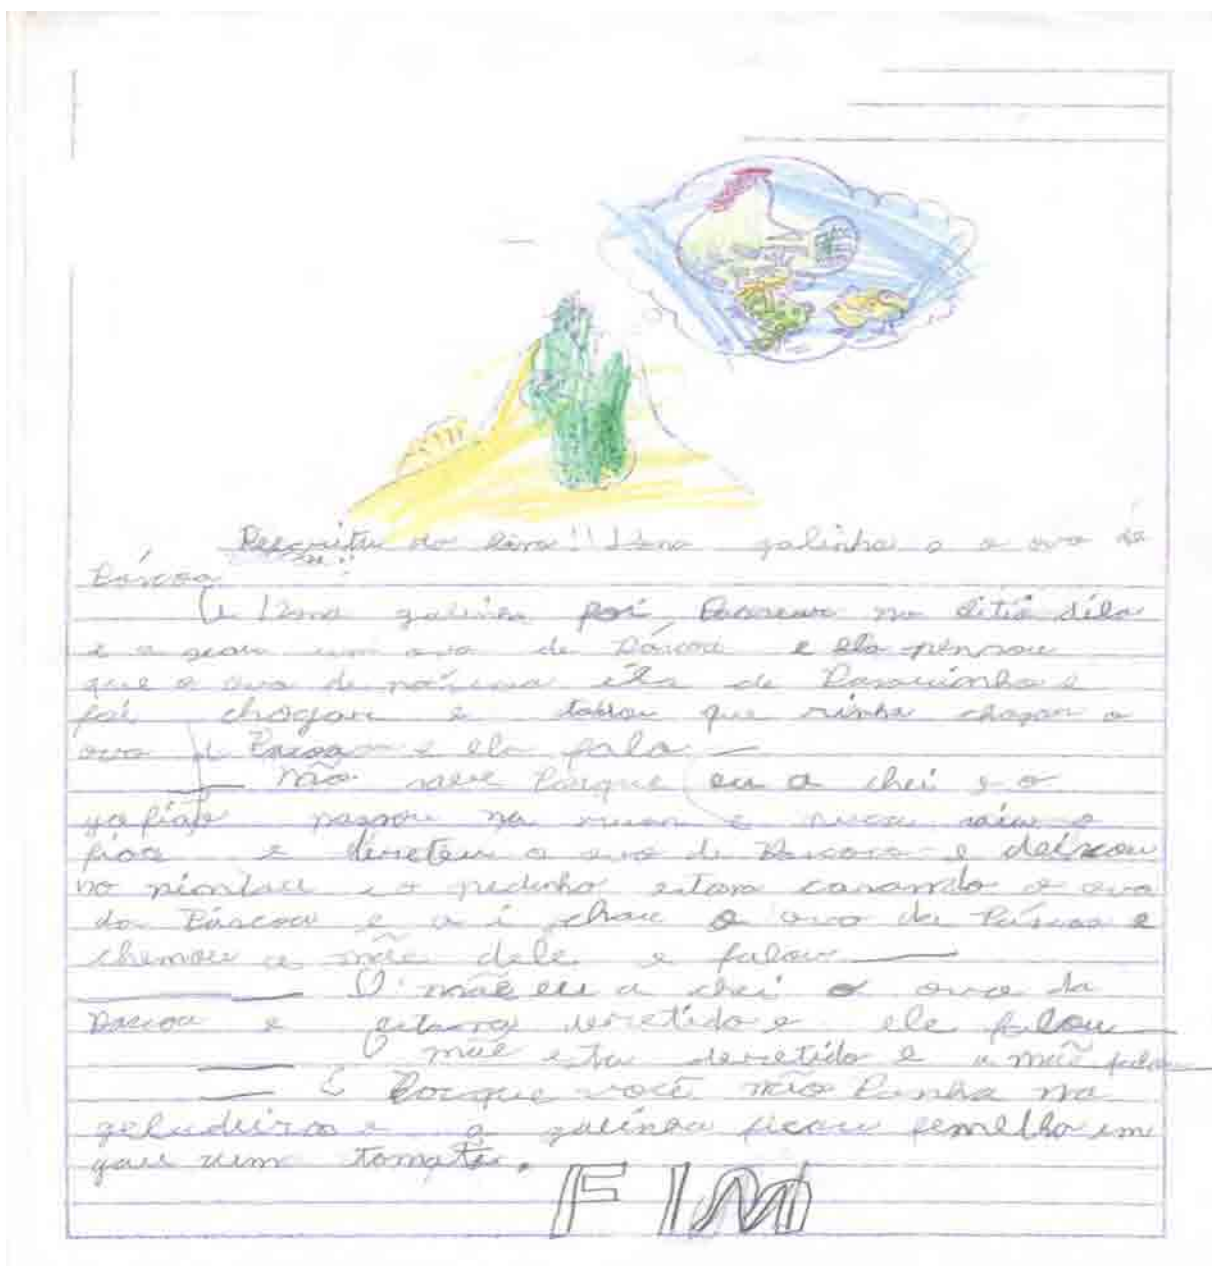 Reescrita do livro!! Uma galinha e o ovo de
Páscoa
Uma galinha foi Passear no sitio dela
e a seou um ovo de Páscoa e ela pensou
que o ovo de páscoa éla de Pasarinho e
foi chogar e tablou que vinha chogar o
ovo de Páscoa e ela fala —
— não Porque eu a chei e o
passou na e
e direteu o ovo de Páscoa e deixou
no e o pedinho estava casando o ovo
da Páscoa e a í chou o ovo da Páscoa e
chemou a mãe dele e falou —
— O mãe eu a chei o ovo da
Páscoa e derretido e ele falou —
mãe esta derretido e a mãe falou
— Porque você não Punha na
geladeira e a galinha ficou femelha im
gau um tomate.
FIM